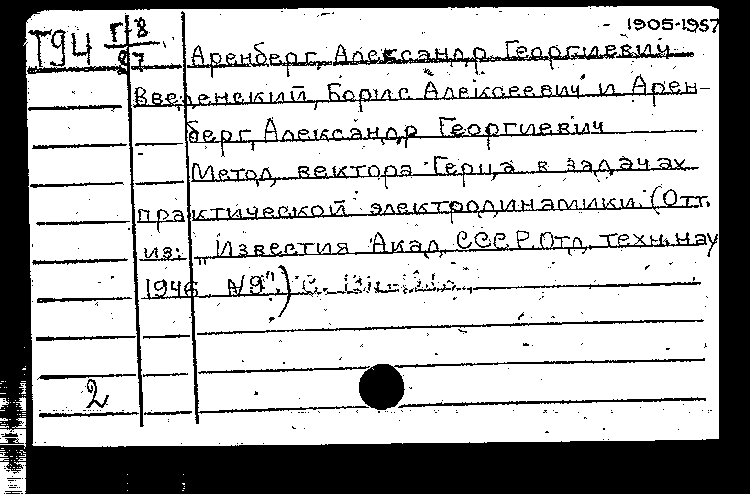 1905-1957
Т94 Г/8
97
Аренберг, Александр Георгиевич
Введенский, Борис Алексеевич и Арен-
берг, Александр Георгиевич
Метод вектора Герца в задачах
практической электродинамики. (Отт.
из: „Известия Акад. СССР. Отд. техн. нау
1946 №9".) С.
2